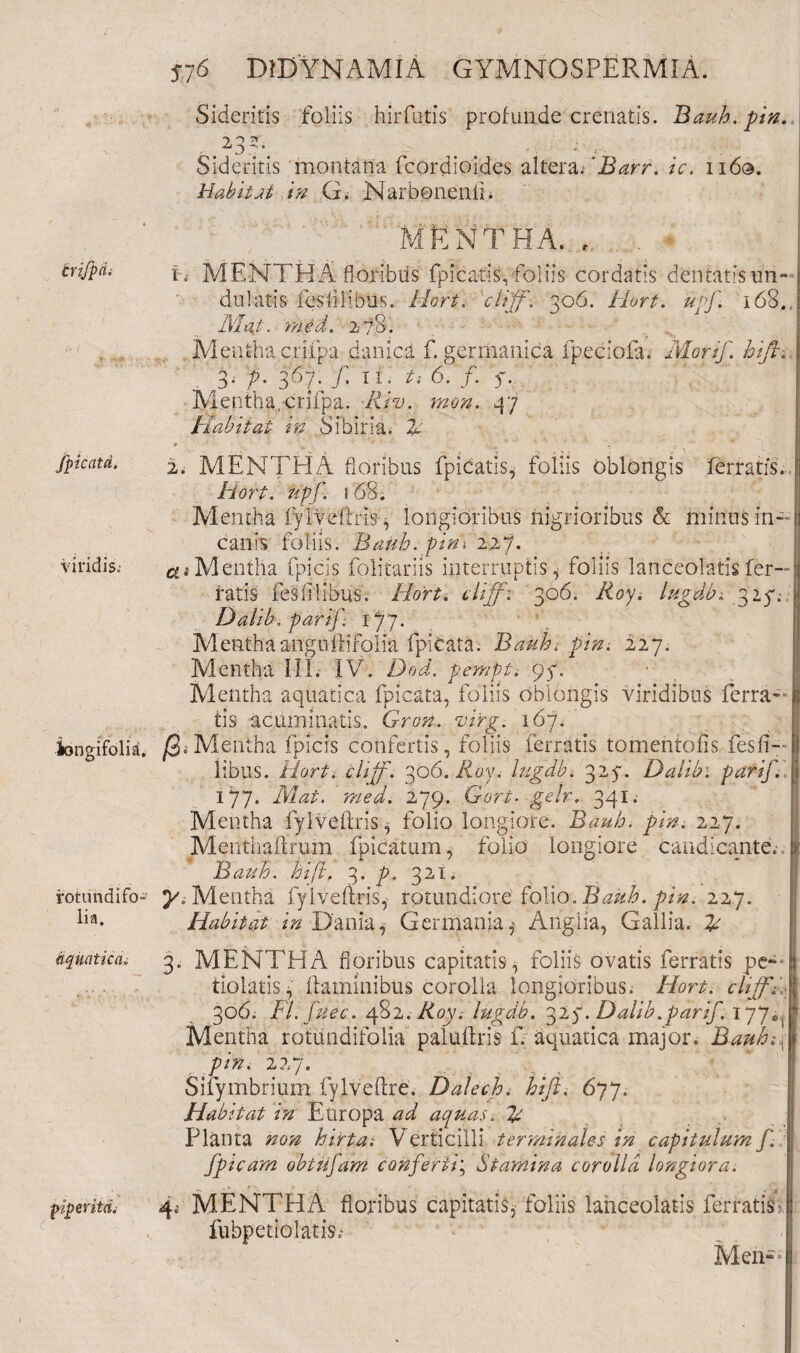 576 DIDYNAMIA GYMNOSPERMIA.
Sideritis foliis hirſutis profunde crenatis. Bauh. pin.
232.
Sideritis montana ſcordioides altera. Barr. ic. 1160.
Habitat in G. Narbonenſi.
MENTHA.
criſpa. 1. MENTHA floribus ſpicatis, foliis cordatis dentatis un-
dulatis ſesſilibus. Hort. cliff. 306. Hort. upſ. 168.
Mat. med. 278.
Mentha criſpa danica ſ. germanica ſpecioſa. Moriſ. hiſt.
3. p. 367. ſ. 11. t. 6. f. 5.
Mentha criſpa. Riv. mon. 47
Habitat in Sibiria. ♃
ſpicata. 2. MENTHA floribus ſpicatis, foliis oblongis ſerratis.
Hort. upſ. 168.
Mentha ſylveſtris, longioribus nigrioribus & minus in-
canis foliis. Bauh. pin. 227.
viridis. α. Mentha ſpicis ſolitariis interruptis, foliis lanceolatis ſer-
ratis ſesſilibus. Hort. cliff. 306. Roy. lugdb. 325.
Dalib. pariſ. 177.
Mentha anguſtifolia ſpicata. Bauh. pin. 227.
Mentha III. IV. Dod. pempt. 95.
Mentha aquatica ſpicata, foliis oblongis viridibus ſerra-
tis acuminatis. Gron. virg. 167.
longifolia. β. Mentha ſpicis confertis, foliis ſerratis tomentoſis ſesſi-
libus. Hort. cliff. 306. Roy. lugdb. 325. Dalib. pariſ.
177. Mat. med. 279. Gort. gelr. 341.
Mentha ſylveſtris, folio longiore. Bauh. pin. 227.
Menthaſtrum ſpicatum, folio longiore candicante.
Bauh. hiſt. 3. p. 321.
rotundifo- γ. Mentha ſylveſtris, rotundiore folio. Bauh. pin. 227.
lia. Habitat in Dania, Germania, Anglia, Gallia. ♃
aquatica. 3. MENTHA floribus capitatis, foliis ovatis ſerratis pe-
tiolatis, ſtaminibus corolla longioribus. Hort. cliff.
306. Fl. ſuec. 482. Roy. lugdb. 325. Dalib. pariſ. 177.
Mentha rotundifolia paluſtris ſ. aquatica major. Bauh.
pin. 227.
Siſymbrium ſylveſtre. Dalech. hiſt. 677.
Habitat in Europa ad aquas. ♃
Planta non hirta. Verticilli terminales in capitulum ſ.
ſpicam obtuſam conferti; Stamina corollâ longiora.
piperita. 4. MENTHA floribus capitatis, foliis lanceolatis ſerratis
ſubpetiolatis.
Men-